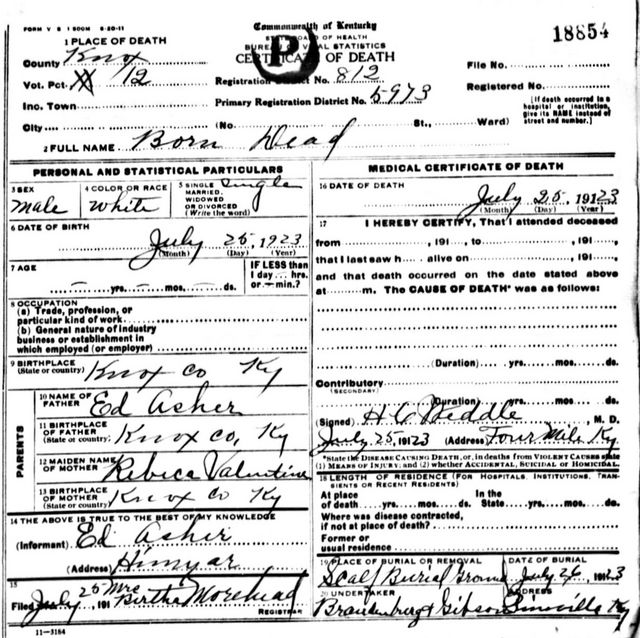 FORM V S 1 500M 5-20-11
Commonwealth of Kentucky
STATE BOARD OF HEALTH
BUREAU OF VITAL STATISTICS
CERTIFICATE OF DEATH
P
18854
1 PLACE OF DEATH
County Knox
Vot. Pct. 12
Inc. Town
City (No. St., Ward)
Registration District No. 812
Primary Registration District No. 5973
File No.
Registered No.
[If death occurred in a hospital or institution, give its NAME instead of street and number.]
2 FULL NAME Born Dead
PERSONAL AND STATISTICAL PARTICULARS
3 SEX
male
4 COLOR OR RACE
White
5 SINGLE MARRIED, WIDOWED OR DIVORCED (Write the word)
Single
6 DATE OF BIRTH
July 25, 1923
(Month) (Day) (Year)
7 AGE
— yrs. — mos. — ds.
IF LESS than 1 day — hrs. or — min.?
8 OCCUPATION
(a) Trade, profession, or particular kind of work
(b) General nature of industry business or establishment in which employed (or employer)
9 BIRTHPLACE
(State or country) Knox co Ky
PARENTS
10 NAME OF FATHER Ed Asher
11 BIRTHPLACE OF FATHER
(State or country) Knox co, Ky
12 MAIDEN NAME OF MOTHER Rebica Valentine
13 BIRTHPLACE OF MOTHER
(State or country) Knox co Ky
14 THE ABOVE IS TRUE TO THE BEST OF MY KNOWLEDGE
(Informant) Ed Asher
(Address) Himyar
15
Filed July 25, 191 Mrs Birtha Morehead
REGISTRAR
11-3184
MEDICAL CERTIFICATE OF DEATH
16 DATE OF DEATH
July 25, 19123
(Month) (Day) (Year)
17 I HEREBY CERTIFY, That I attended deceased
from , 191 , to , 191 ,
that I last saw h alive on , 191 ,
and that death occurred on the date stated above
at m. The CAUSE OF DEATH* was as follows:
(Duration) yrs. mos. ds.
Contributory
(SECONDARY)
(Duration) yrs. mos. ds.
(Signed) H C Biddle, M. D.
July 25, 19123 (Address) Four Mile Ky
*State the DISEASE CAUSING DEATH, or, in deaths from VIOLENT CAUSES state (1) MEANS OF INJURY; and (2) whether ACCIDENTAL, SUICIDAL OR HOMICIDAL.
18 LENGTH OF RESIDENCE (FOR HOSPITALS, INSTITUTIONS, TRANSIENTS OR RECENT RESIDENTS)
At place of death yrs. mos. ds. In the State yrs. mos. ds.
Where was disease contracted, if not at place of death?
Former or usual residence
19 PLACE OF BURIAL OR REMOVAL
Scalf Burial Ground
DATE OF BURIAL
July 26, 19123
20 UNDERTAKER
Gibson
ADDRESS
Ky